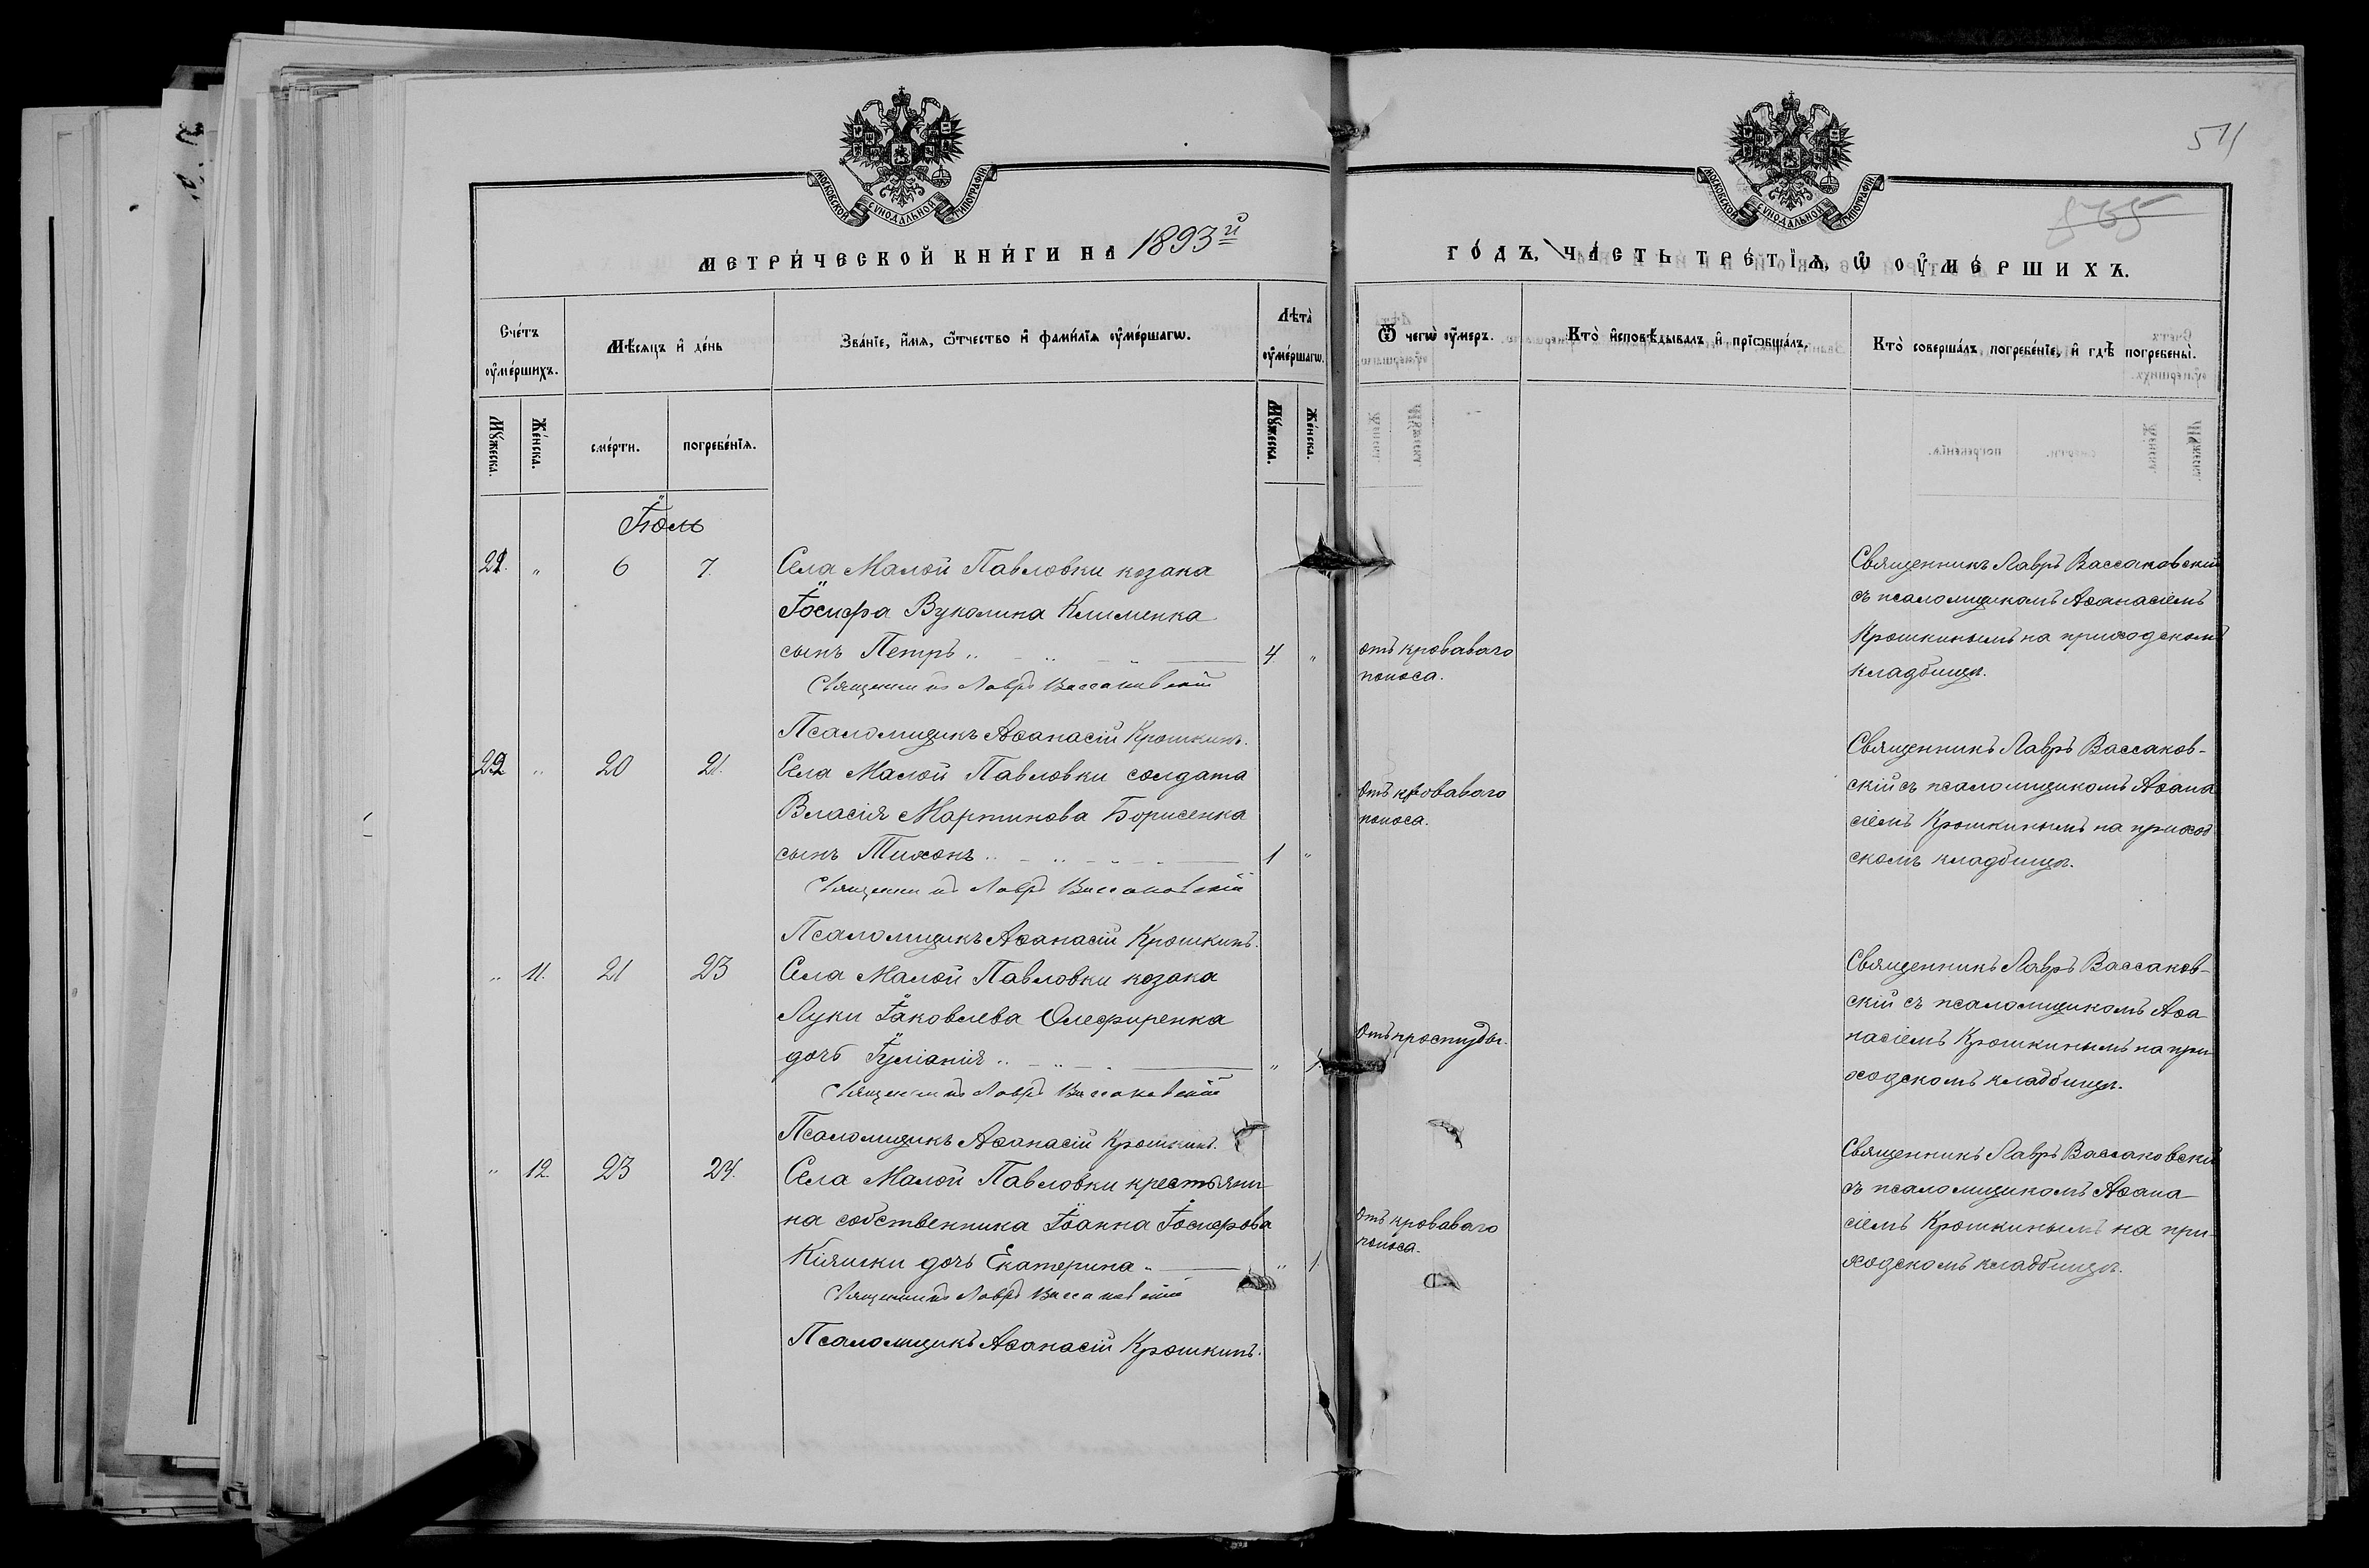 511
865
МОСКОВСКОЙ СУНОДАЛЬНОЙ ТИПОГРАФІИ
МОСКОВСКОЙ СУНОДАЛЬНОЙ ТИПОГРАФІИ
МЕТРИ́ЧЕСКОЙ КНИ́ГИ НА 1893й
ГО́ДЪ, ЧА́СТЬ ТРЕ́ТЇѦ, Ѡ ОУ҆МЕ́РШИХЪ.
Сче́тъ оу҆ме́ршихъ.
Мѣ́сяцъ и҆ де́нь
Зва́нїе, и҆́мѧ, ѻ҆́тчество и҆ фами́лїѧ оу҆ме́ршагѡ.
Лѣта̀ оу҆ме́ршагѡ.
Ѿ чегѡ̀ оу҆́меръ.
Кто̀ и҆сповѣ́дывалъ и҆ прїѡбща́лъ.
Кто̀ соверша́лъ погребе́нїе, и҆ гдѣ̀ погребены̀.
Мꙋ́жеска.
Же́нска.
сме́рти.
погребе́нїѧ.
Мꙋ́жеска.
Же́нска.
Іюль
21. " 6 7. Села Малой Павловки козака
Іосифа Вуколина Клименка
сынъ Петръ 4. "
Священникъ Лавръ Вассаковскій
Псаломщикъ Аѳанасій Крошкинъ.
отъ кроваваго
поноса.
Священникъ Лавръ Вассаковскій
съ псаломщикомъ Аѳанасіемъ
Крошкинымъ на приходскомъ
кладбищѣ.
22 " 20 21. Села Малой Павловки солдата
Власія Мартинова Борисенка
сынъ Тихонъ 1 "
Священникъ Лавръ Вассаковскій
Псаломщикъ Аѳанасій Крошкинъ.
Отъ кроваваго
поноса.
Священникъ Лавръ Вассаков-
скій съ псаломщикомъ Аѳана
сіемъ Крошкинымъ на приход
скомъ кладбищѣ.
" 11. 21 23 Села Малой Павловки козака
Луки Іаковлева Олефиренка
дочь Іуліанія " 1.
Священникъ Лавръ Вассаковскій
Псаломщикъ Аѳанасій Крошкинъ.
Отъ простуды.
Священникъ Лавръ Вассаков-
скій съ псаломщикомъ Аѳа
насіемъ Крошкинымъ на при-
ходскомъ кладбищѣ.
" 12. 23 24. Села Малой Павловки крестьяни-
на собственника Іоанна Іосифова
Кіяшки дочь Екатерина " 1.
Священникъ Лавръ Вассаковскій
Псаломщикъ Аѳанасій Крошкинъ.
Отъ кроваваго
поноса.
Священникъ Лавръ Вассаковскій
съ псаломщикомъ Аѳана
сіемъ Крошкинымъ на при-
ходскомъ кладбищѣ.